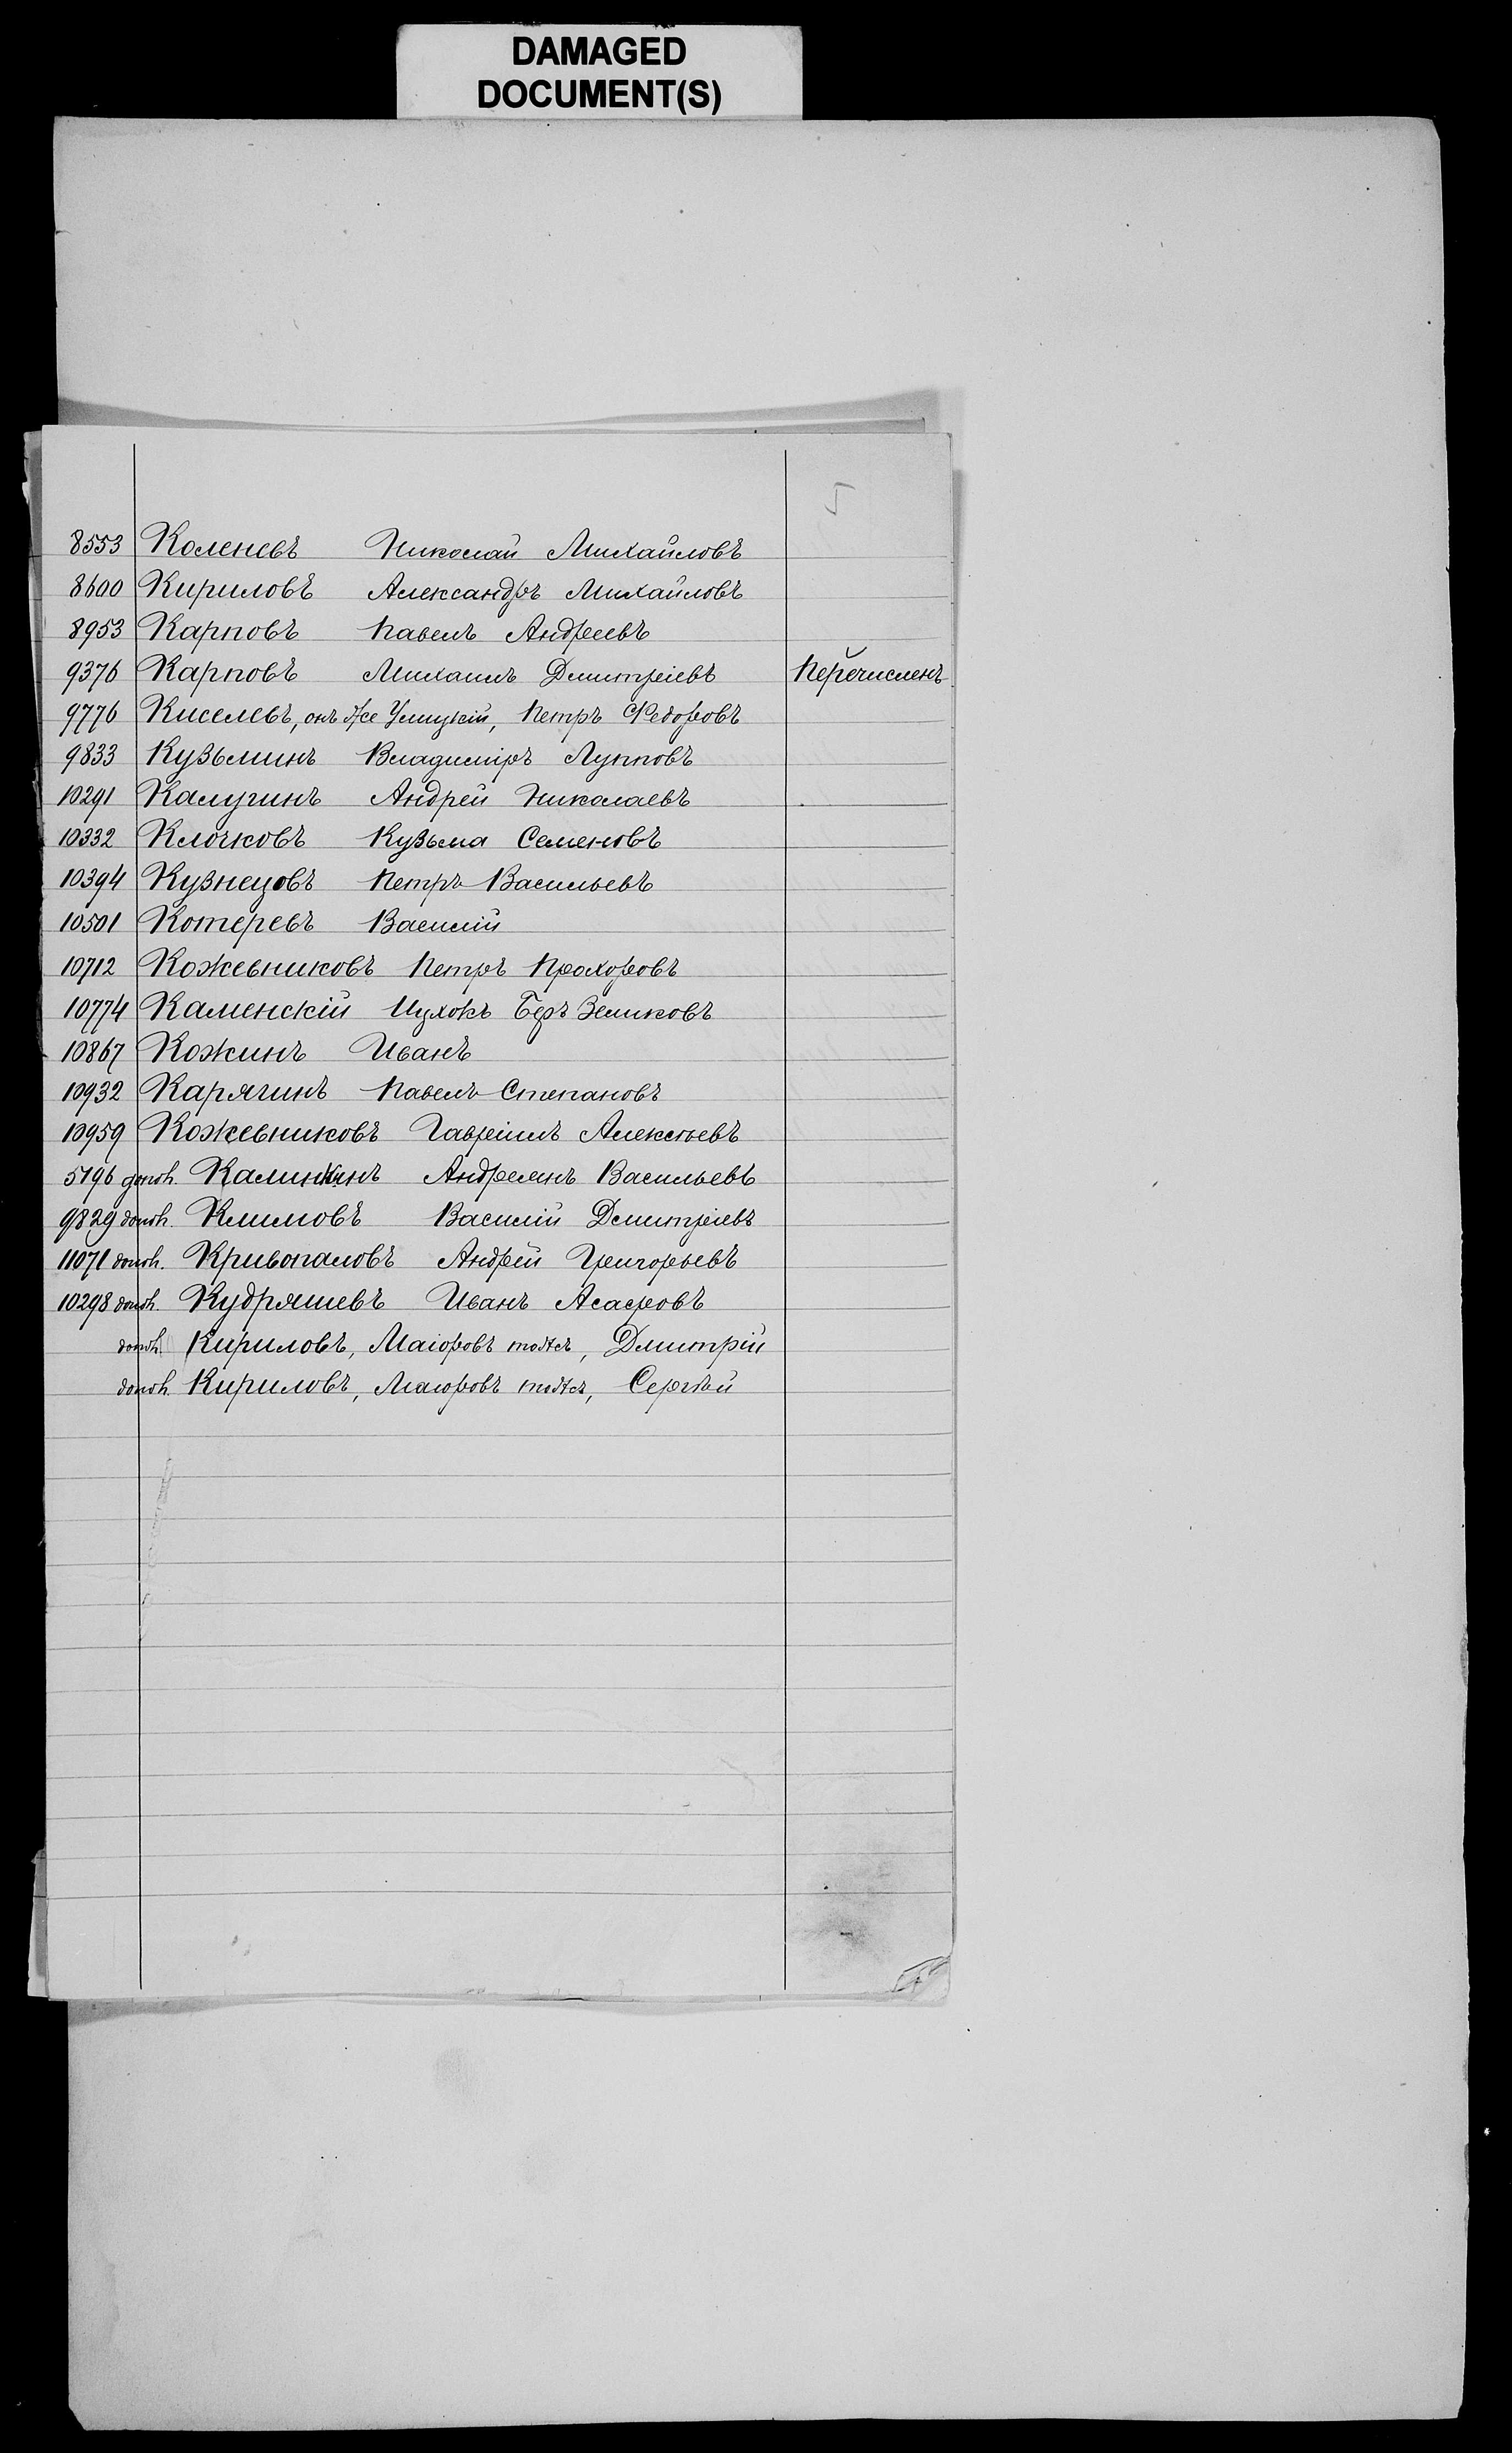 DAMAGED
DOCUMENT(S)
8553 Коленевъ Николай Михайловъ
8600 Кириловъ Александръ Михайловъ
8953 Карповъ Павелъ Андреевъ
9376 Карповъ Михаилъ Дмитріевъ Перечисленъ
9776 Киселевъ, онъ же Улицкій, Петръ Федоровъ
9833 Кузьминъ Владиміръ Лупповъ
10291 Калугинъ Андрей Николаевъ
10332 Клочковъ Кузьма Семеновъ
10394 Кузнецовъ Петръ Васильевъ
10501 Котеревъ Василій
10712 Кожевниковъ Петръ Прохоровъ
10774 Каменскій Ицхокъ Беръ Зеликовъ
10867 Кожинъ Иванъ
10932 Карягинъ Павелъ Степановъ
10959 Кожевниковъ Гавріилъ Алексѣевъ
5796 дополн. Калинкинъ Андреянъ Васильевъ
9829 дополн. Климовъ Василій Дмитріевъ
11071 дополн. Кривопаловъ Андрей Григорьевъ
10298 дополн. Кудряшевъ Иванъ Асафовъ
дополн. Кириловъ, Маіоровъ тожъ, Дмитрій
дополн. Кириловъ, Маіоровъ тожъ, Сергѣй